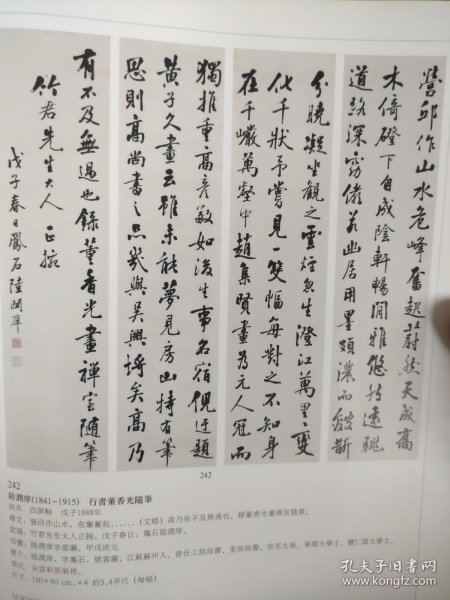 營邱作山水危峰奮起蔚然天成高
木倚磴下自成陰軒暢閒雅悠然遠眺
道路深窈儼若幽居用墨頗濃而皴斮
分曉凝坐觀之雲煙忽生澄江萬里變
化千狀予嘗見一雙幅每對之不知身
在千巖萬壑中趙集賢畫為元人冠而
獨推重高彥敬如後生事名宿倪迂題
黃子久畫云雖未能夢見房山特有筆
思則高尚書之品幾與吳興埒矣高乃
有不及無過也錄董香光畫禪室隨筆
竹君先生大人 正捥
戊子春日鳳石陸潤庠
242
242
陸潤庠(1841-1915) 行書董香光隨筆
紙本 四屏軸 戊子1888年
釋文：營邱作山水，危峰奮起......（文略）高乃有不及無過也，錄董香光畫禪室隨筆。
款識：竹君先生大人正捥，戊子春日，鳳石陸潤庠。
印鑒：陸潤庠字雲灑、甲戌狀元
簡介：陸潤庠，字鳳石，號雲灑，江蘇蘇州人，曾任工部尚書、吏部尚書，官至太保、東閣大學士、體仁閣大學士。
備註：朵雲軒原裝裱。
尺寸：160×40 cm. ×4 約5.4平尺（每幅）
孔夫子旧书网